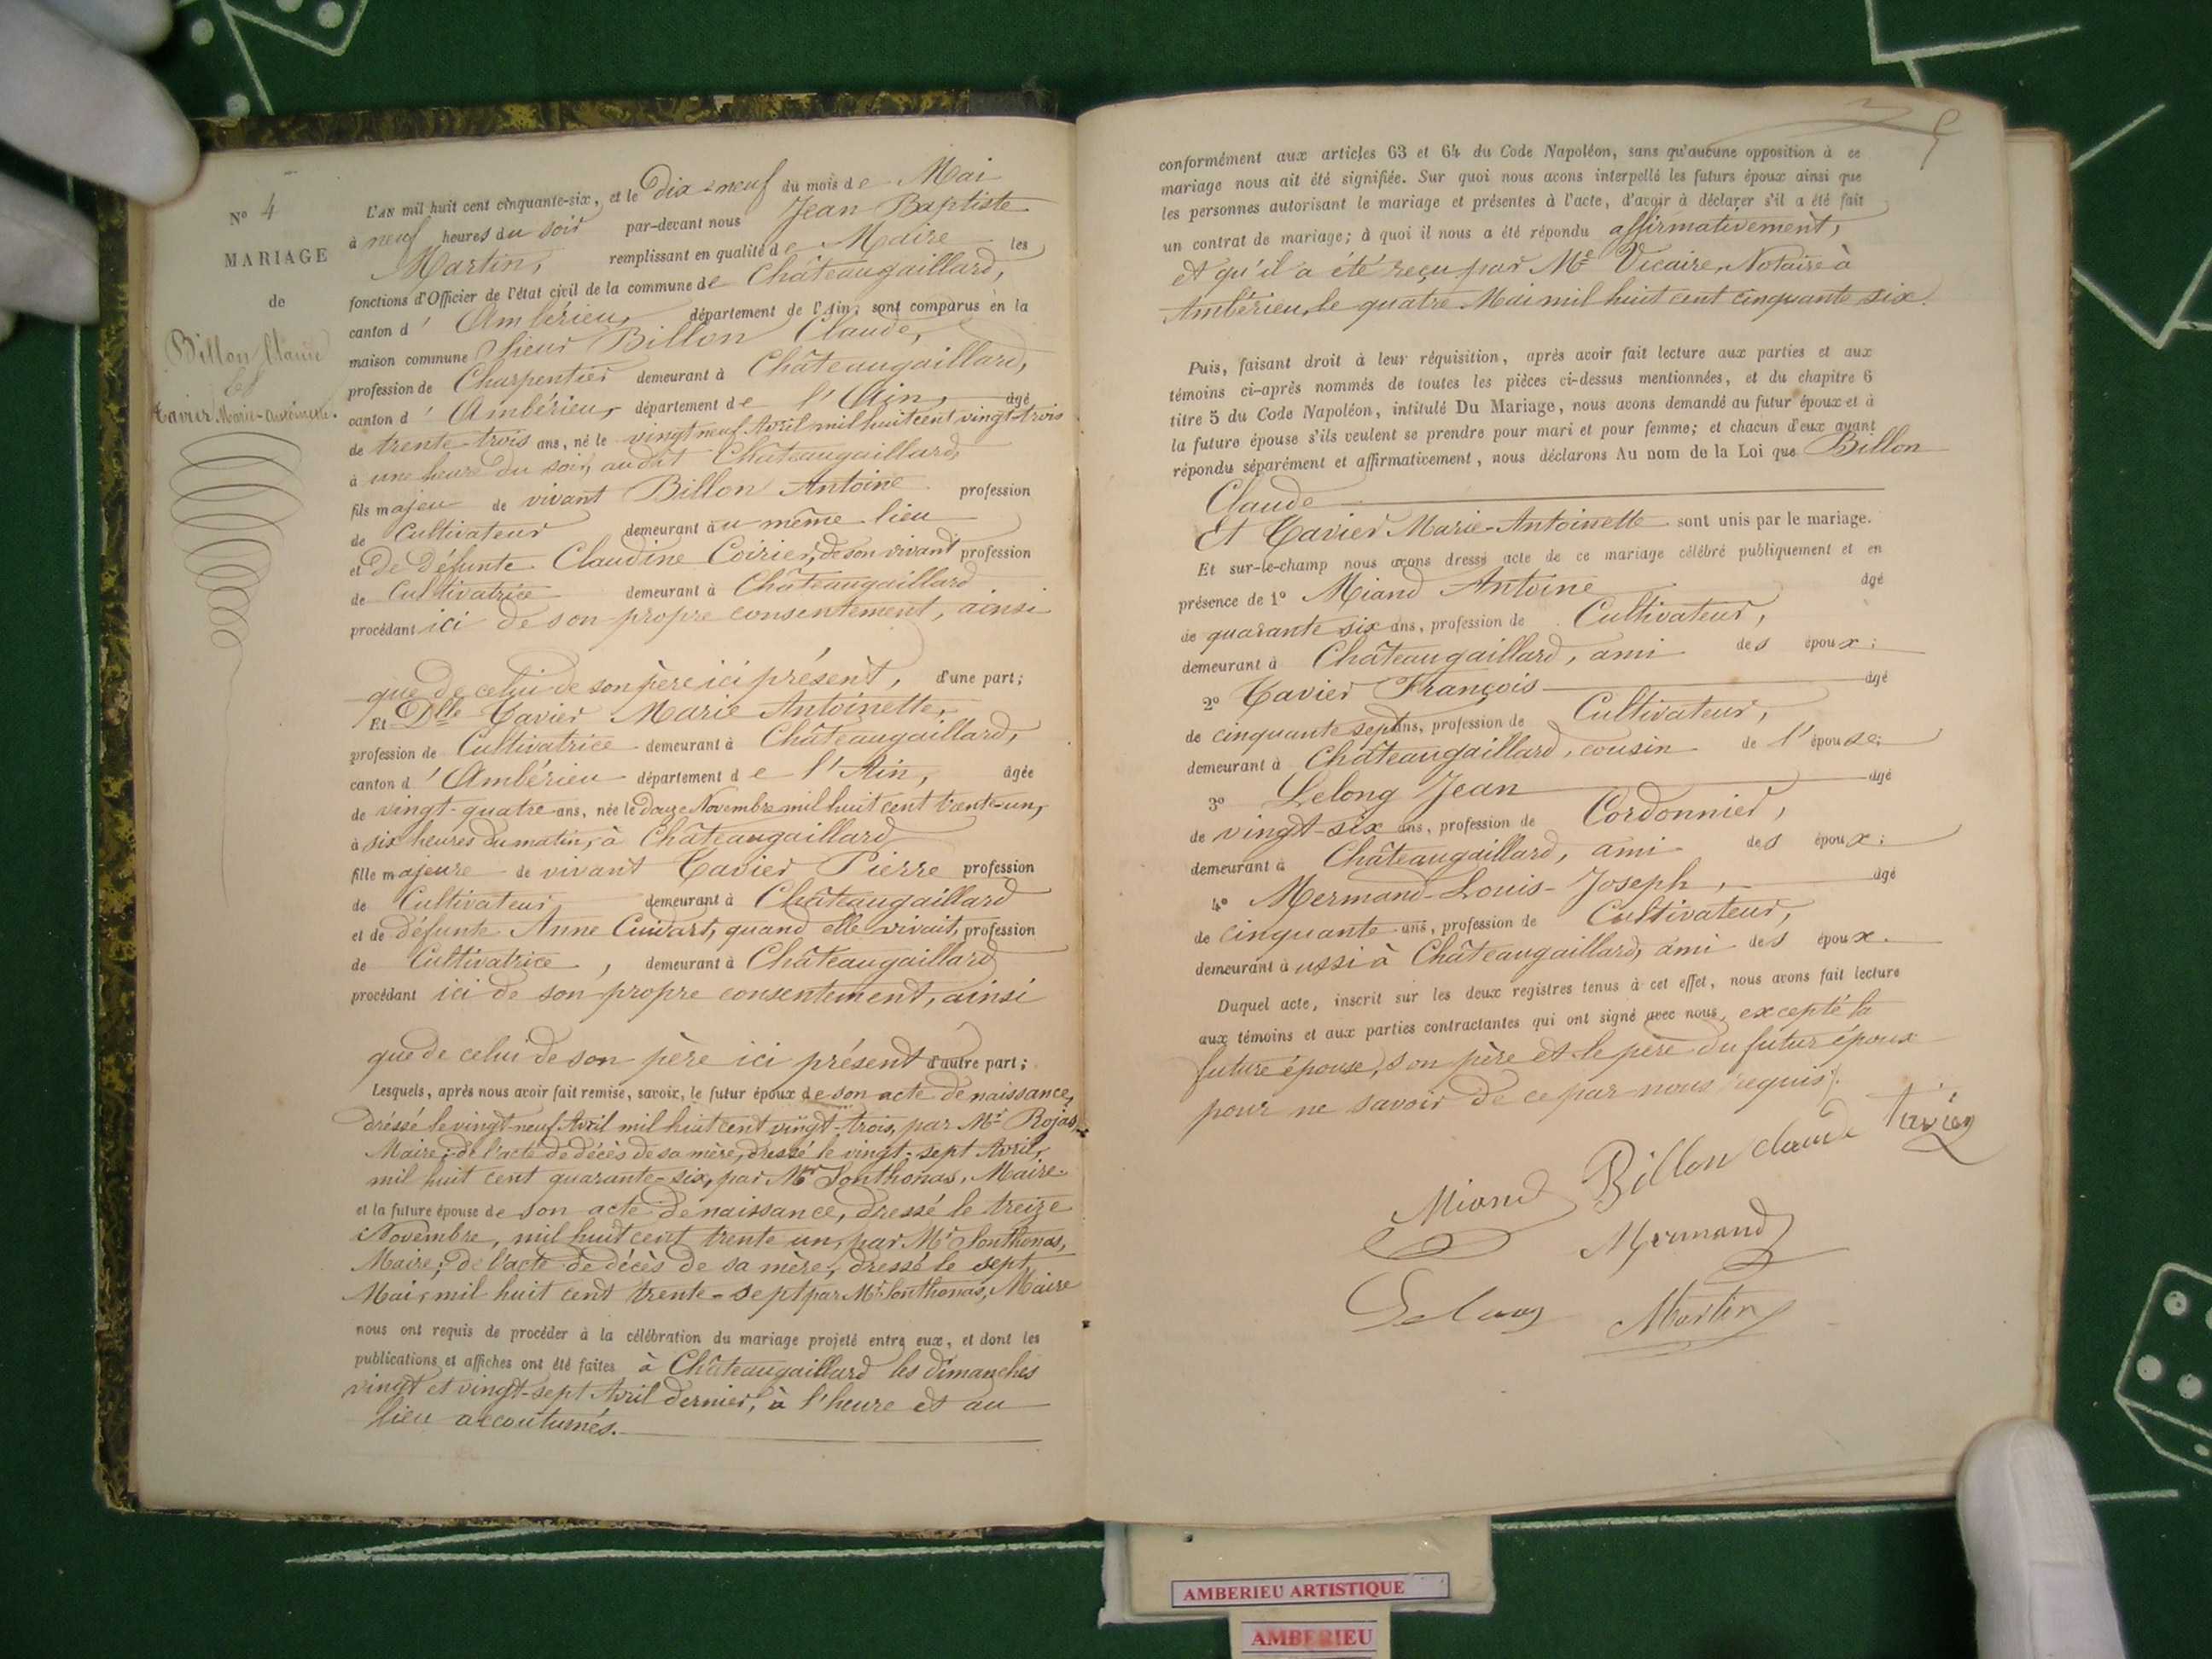 N° 4
MARIAGE
de
Billon Claude
et
Tavier Marie-Antoinette.
L'AN mil huit cent cinquante-six, et le Dix-neuf du mois de Mai
à neuf heures du soir par-devant nous Jean-Baptiste
Martin, remplissant en qualité de Maire les
fonctions d'Officier de l'état civil de la commune de Châteaugaillard,
canton d'Ambérieu, département de l'Ain, sont comparus en la
maison commune Sieur Billon Claude,
profession de Charpentier demeurant à Châteaugaillard,
canton d'Ambérieu, département de l'Ain, âgé
de trente-trois ans, né le vingt neuf Avril mil huit cent vingt-trois
à une heure du soir, audit Châteaugaillard,
fils majeur de vivant Billon Antoine profession
de Cultivateur demeurant au même lieu
et de défunte Claudine Coirier, de son vivant profession
de Cultivatrice demeurant à Châteaugaillard
procédant ici de son propre consentement, ainsi
que de celui de son père ici présent, d'une part;
Et Dlle Tavier Marie Antoinette,
profession de Cultivatrice demeurant à Châteaugaillard,
canton d'Ambérieu département de l'Ain, âgée
de vingt-quatre ans, née le douze Novembre mil huit cent trente-un,
à six heures du matin, à Châteaugaillard
fille majeure de vivant Tavier Pierre profession
de Cultivateur demeurant à Châteaugaillard
et de défunte Anne quand elle vivait, profession
de Cultivatrice, demeurant à Châteaugaillard
procédant ici de son propre consentement, ainsi
que de celui de son père ici présent d'autre part;
Lesquels, après nous avoir fait remise, savoir, le futur époux de son acte de naissance,
dréssé le vingt-neuf Avril mil huit cent vingt-trois, par Mr Rojas,
Maire; de l'acte de décès de sa mère, dressé le vingt-sept Avril,
mil huit cent quarante-six, par Mr Sonthonas, Maire.
et la future épouse de son acte de naissance, dressé le treize
Novembre, mil huit cent trente un, par Mr Sonthonas,
Maire; de l'acte de décès de sa mère, dressé le sept
Mai, mil huit cent trente-sept par Mr Sonthonas, Maire
nous ont requis de procéder à la célébration du mariage projeté entre eux, et dont les
publications et affiches ont été faites à Châteaugaillard les dimanches
vingt et vingt-sept Avril dernier, à l'heure et au
lieu accoutumés.
conformément aux articles 63 et 64 du Code Napoléon, sans qu'aucune opposition à ce
mariage nous ait été signifiée. Sur quoi nous avons interpellé les futurs époux ainsi que
les personnes autorisant le mariage et présentes à l'acte, d'avoir à déclarer s'il a été fait
un contrat de mariage; à quoi il nous a été répondu affirmativement,
et qu'il a été reçu par Me Vicaire, Notaire à
Ambérieu, le quatre Mai mil huit cent cinquante six.
Puis, faisant droit à leur réquisition, après avoir fait lecture aux parties et aux
témoins ci-après nommés de toutes les pièces ci-dessus mentionnées, et du chapitre 6
titre 5 du Code Napoléon, intitulé Du Mariage, nous avons demandé au futur époux et à
la future épouse s'ils veulent se prendre pour mari et pour femme; et chacun d'eux ayant
répondu séparément et affirmativement, nous déclarons Au nom de la Loi que Billon
Claude
Et Tavier Marie-Antoinette sont unis par le mariage.
Et sur-le-champ nous avons dressé acte de ce mariage célébré publiquement et en
présence de 1° Miand Antoine âgé
de quarante six ans, profession de Cultivateur,
demeurant à Châteaugaillard, ami des époux;
2° Tavier François âgé
de cinquante sept ans, profession de Cultivateur,
demeurant à Châteaugaillard, cousin de l'épouse;
3° Lelong Jean âgé
de vingt-six ans, profession de Cordonnier,
demeurant à Châteaugaillard, ami des époux;
4° Mermand Louis-Joseph, âgé
de cinquante ans, profession de Cultivateur,
demeurant aussi à Châteaugaillard, ami des époux.
Duquel acte, inscrit sur les deux registres tenus à cet effet, nous avons fait lecture
aux témoins et aux parties contractantes qui ont signé avec nous, excepté la
future épouse, son père et le père du futur époux
pour ne savoir de ce par nous requis.
Miand Billon Claude Tavier
Mermand
Lelong Martin
AMBERIEU ARTISTIQUE
AMBERIEU